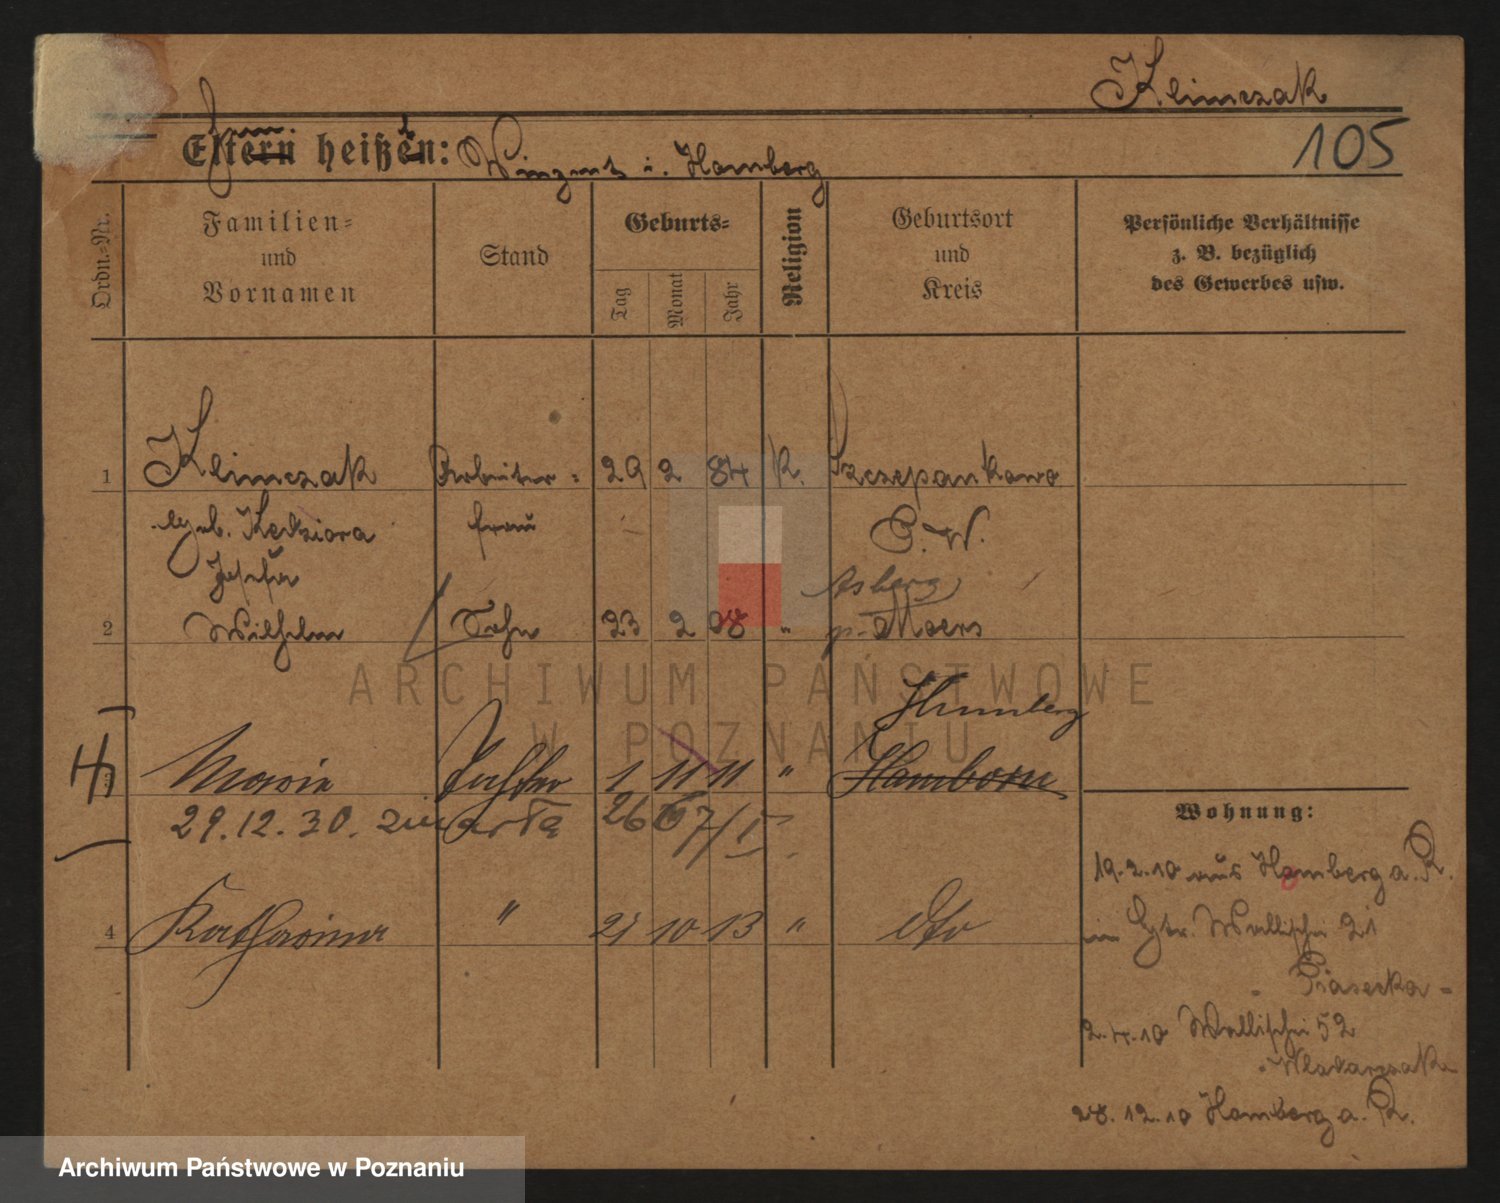 Klimczak
105
Eltern heißen: Winzent i. Homberg
Ordn.-Nr.
Familien-
und
Vornamen
Stand
Geburts-
Tag
Monat
Jahr
Religion
Geburtsort
und
Kreis
Persönliche Verhältnisse
z. B. bezüglich
des Gewerbes usw.
1 Klimczak Arbeiter- 29 2 84 K. Szczepankowo
geb. Kedziora frau P.W.
Josefa
Asberg
2 Wilhelm Sohn 23 2 08 " Moers
Homberg
Maria Tochter 1 11 11 " Hamborn
29.12.30. zmarła
4 Katharina " 21 10 13 " dto
Wohnung:
19.2.10 aus Homberg a. R.
Wallischei 21
Piasecka -
2.4.10 Wallischei 52
Wlodarczak
28.12.10 Homberg a. R.
ARCHIWUM PAŃSTWOWE
W POZNANIU
Archiwum Państwowe w Poznaniu